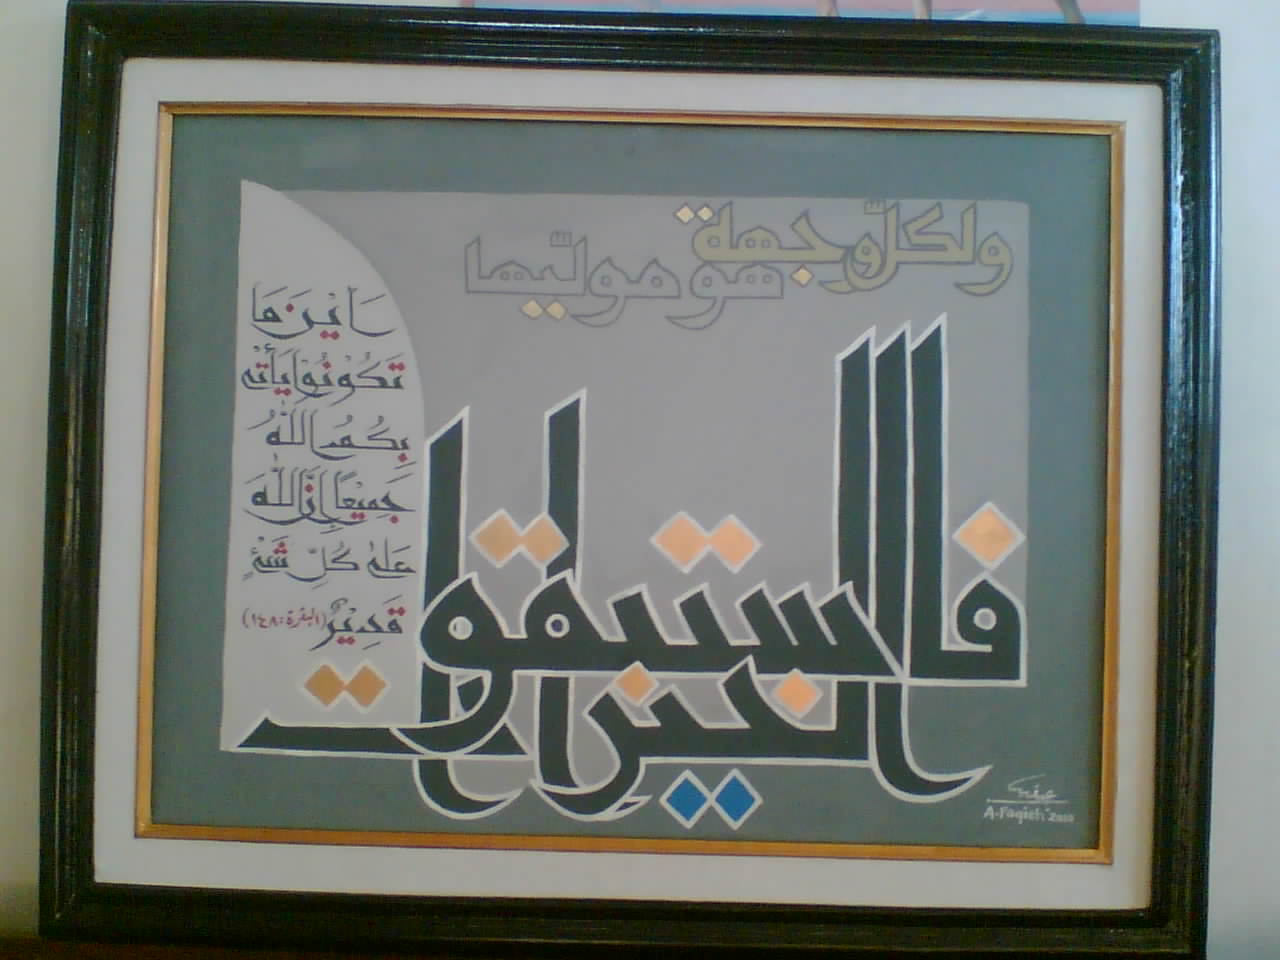 ولكلّ وجهة
هو موليّها
فاستبقوا
الخيرات
اَيْنَ مَا
تَكُوْنُوْا يَأْتِ
بِكُمُ اللّٰهُ
جَمِيْعًا اِنَّ اللّٰهَ
عَلٰى كُلِّ شَيْءٍ
قَدِيْرٌ (البقرة: ١٤٨)
A.Faqieh '2010